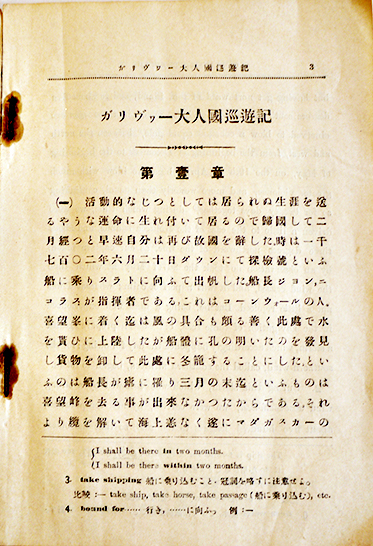 ガリヴァー大人國巡遊記 3
ガリヴァー大人國巡遊記
第壹章
(一) 活動的なじつとしては居られぬ生涯を送
るやうな運命に生れ付いて居るので歸國して二
月經つと早速自分は再び故國を辭した、時は一千
七百〇二年六月二十日ダウンにて探檢號といふ
船に乘りスラトに向ふて出帆した、船長ジョン、ニ
コラスが指揮者である、これはコーンウォールの人。
喜望峯に着く迄は風の具合も頗る善く此處で水
を貰ひに上陸したが船體に孔の明いたのを發見
し貨物を卸して此處に冬籠することにした、とい
ふのは船長が瘧に罹り三月の末迄といふものは
喜望峰を去る事が出來なかつたからである、それ
より纜を解いて海上恙なく遂にマダガスカーの
I shall be there in two months.
I shall be there within two months.
3. take shipping 船に乘り込むこと、冠詞を略すに注意せよ。
比較:— take ship, take horse, take passage (船に乘り込む), etc.
4. bound for ...... 行き、......に向ふ。 例:—